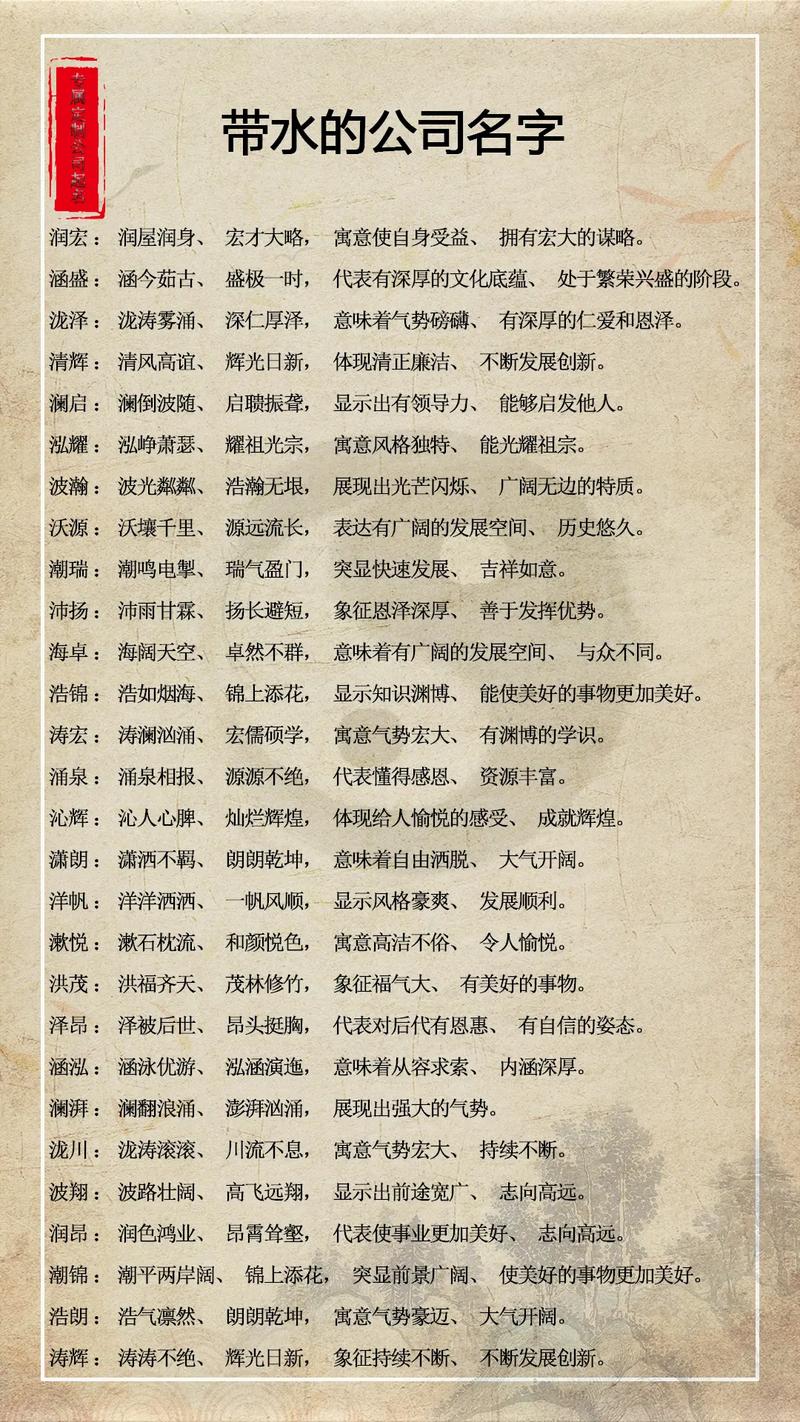 带水的公司名字
润宏：润屋润身、宏才大略，寓意使自身受益、拥有宏大的谋略。
涵盛：涵今茹古、盛极一时，代表有深厚的文化底蕴、处于繁荣兴盛的阶段。
泷泽：泷涛雾涌、深仁厚泽，意味着气势磅礴、有深厚的仁爱和恩泽。
清辉：清风高谊、辉光日新，体现清正廉洁、不断发展创新。
澜启：澜倒波随、启聩振聋，显示出有领导力、能够启发他人。
泓耀：泓峥萧瑟、耀祖光宗，寓意风格独特、能光耀祖宗。
波瀚：波光粼粼、浩瀚无垠，展现出光芒闪烁、广阔无边的特质。
沃源：沃壤千里、源远流长，表达有广阔的发展空间、历史悠久。
潮瑞：潮鸣电掣、瑞气盈门，突显快速发展、吉祥如意。
沛扬：沛雨甘霖、扬长避短，象征恩泽深厚、善于发挥优势。
海卓：海阔天空、卓然不群，意味着有广阔的发展空间、与众不同。
浩锦：浩如烟海、锦上添花，显示知识渊博、能使美好的事物更加美好。
涛宏：涛澜汹涌、宏儒硕学，寓意气势宏大、有渊博的学识。
涌泉：涌泉相报、源源不绝，代表懂得感恩、资源丰富。
沁辉：沁人心脾、灿烂辉煌，体现给人愉悦的感受、成就辉煌。
潇朗：潇洒不羁、朗朗乾坤，意味着自由洒脱、大气开阔。
洋帆：洋洋洒洒、一帆风顺，显示风格豪爽、发展顺利。
漱悦：漱石枕流、和颜悦色，寓意高洁不俗、令人愉悦。
洪茂：洪福齐天、茂林修竹，象征福气大、有美好的事物。
泽昂：泽被后世、昂头挺胸，代表对后代有恩惠、有自信的姿态。
涵泓：涵泳优游、泓涵演迤，意味着从容求索、内涵深厚。
澜湃：澜翻浪涌、澎湃汹涌，展现出强大的气势。
泷川：泷涛滚滚、川流不息，寓意气势宏大、持续不断。
波翔：波路壮阔、高飞远翔，显示出前途宽广、志向高远。
润昂：润色鸿业、昂霄耸壑，代表使事业更加美好、志向高远。
潮锦：潮平两岸阔、锦上添花，突显前景广阔、使美好的事物更加美好。
浩朗：浩气凛然、朗朗乾坤，寓意气势豪迈、大气开阔。
涛辉：涛涛不绝、辉光日新，象征持续不断、不断发展创新。